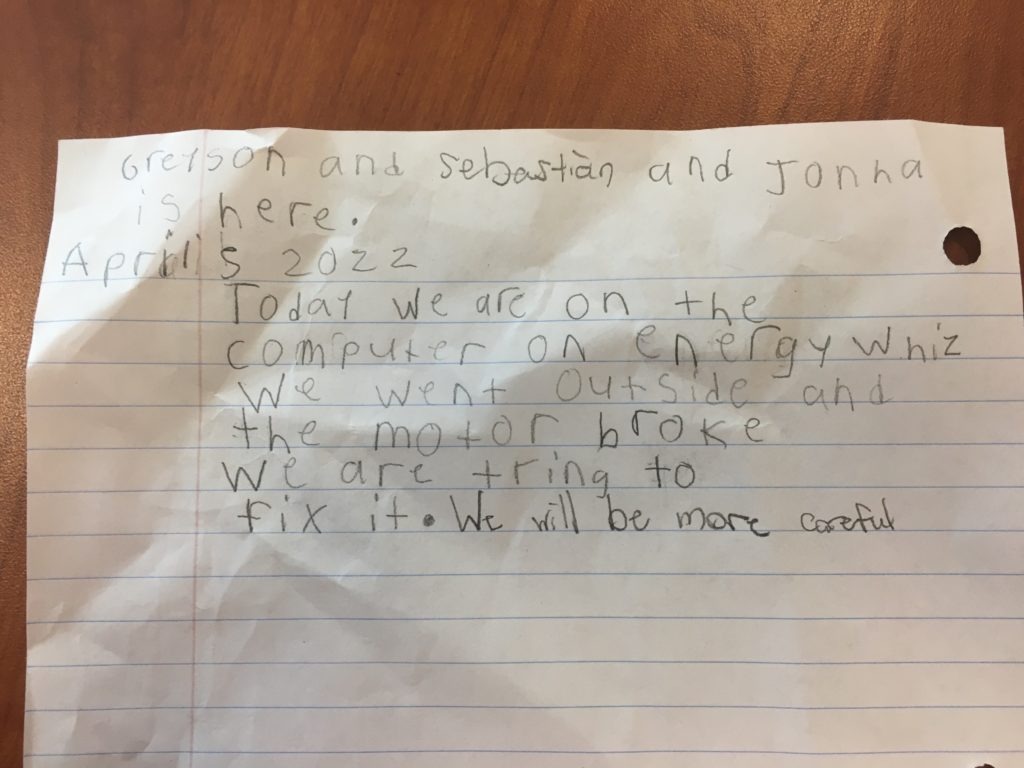 Greyson and Sebastiàn and Jonna
is here.
April 5 2022
Today we are on the
computer on energy whiz
We went outside and
the motor broke
We are tring to
fix it. We will be more careful